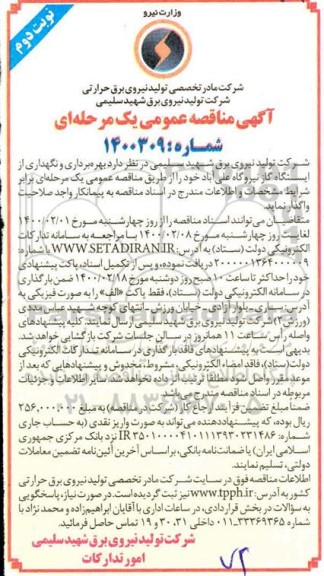 وزارت نیرو
نوبت دوم
شرکت مادر تخصصی تولید نیروی برق حرارتی
شرکت تولید نیروی برق شهید سلیمی
آگهی مناقصه عمومی یک مرحله‌ای
شماره: ۱۴۰۰۳۰۹
شرکت تولید نیروی برق شهید سلیمی در نظر دارد بهره‌برداری و نگهداری از
ایستگاه گاز نیروگاه علی‌آباد خود را از طریق مناقصه عمومی یک مرحله‌ای برابر
شرایط مشخصات و اطلاعات مندرج در اسناد مناقصه به پیمانکار واجد صلاحیت
واگذار نماید.
متقاضیان می‌توانند اسناد مناقصه را از روز چهارشنبه مورخ ۱۴۰۰/۰۲/۰۱
لغایت روز چهارشنبه مورخ ۱۴۰۰/۰۲/۰۸ با مراجعه به سامانه تدارکات
الکترونیکی دولت (ستاد) به آدرس: WWW.SETADIRAN.IR با شماره:
۲۰۰۰۰۰۱۳۶۴۰۰۰۰۰۹ دریافت نموده، و پس از تکمیل اسناد، پاکت پیشنهادی
خود را حداکثر تا ساعت ۱۰ صبح روز دوشنبه مورخ ۱۴۰۰/۰۲/۱۸ ضمن بارگذاری
در سامانه الکترونیکی دولت (ستاد)، فقط پاکت «الف» را به صورت فیزیکی به
آدرس: ساری - بلوار آزادی - خیابان ورزش - انتهای کوچه شهید عباس عبدی
(ورزش ۲) شرکت تولید نیروی برق شهید سلیمی ارسال نمایند. کلیه پیشنهادهای
واصله رأس ساعت ۱۱ همان روز در سالن جلسات شرکت بازگشایی خواهد شد.
بدیهی است به پیشنهادهای فاقد بارگذاری در سامانه تدارکات الکترونیکی
دولت (ستاد)، فاقد امضاء الکترونیکی، مشروط، مخدوش و پیشنهادهایی که بعد از
موعد مقرر واصل شود مطلقاً ترتیب اثر داده نخواهد شد. سایر اطلاعات و جزئیات
مربوطه در اسناد مناقصه مندرج می‌باشد.
ضمناً مبلغ تضمین فرآیند ارجاع کار (شرکت در مناقصه) به مبلغ ۳۵۶,۰۰۰,۰۰۰
ریال بوده، که پیشنهاددهنده می‌تواند به صورت واریز نقدی (به حساب جاری
شماره: IR ۳۵۰۱۰۰۰۰۴۱۰۱۱۱۳۹۳۰۲۳۱۴۸۶ نزد بانک مرکزی جمهوری
اسلامی ایران) یا ضمانت‌نامه بانکی، براساس آخرین آئین‌نامه تضمین معاملات
دولتی، تسلیم نمایند.
اطلاعات مناقصه فوق در سایت شرکت مادر تخصصی تولید نیروی برق حرارتی
کشور به آدرس: www.tpph.ir نیز ثبت گردیده است. در صورت نیاز، پاسخگویی
به سوالات در بخش قراردادی، در ساعات اداری با آقایان ابراهیم‌زاده و محمد نژاد با
شماره ۳۳۳۶۹۳۶۵-۰۱۱ داخلی ۳۱، ۳۰ و ۱۹ تماس حاصل فرمائید.
شرکت تولید نیروی برق شهید سلیمی
امور تدارکات